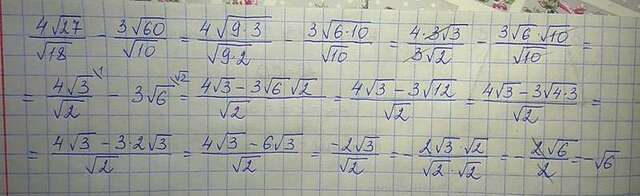 4√27/√18 − 3√60/√10 = 4√(9·3)/√(9·2) − 3√(6·10)/√10 = 4·3√3/3√2 − 3√6 √10/√10 =
= 4√3/√2 \1 − 3√6 \√2 = (4√3 − 3√6 √2)/√2 = (4√3 − 3√12)/√2 = (4√3 − 3√(4·3))/√2 =
= (4√3 − 3·2√3)/√2 = (4√3 − 6√3)/√2 = −2√3/√2 = − 2√3·√2/√2·√2 = − 2√6/2 = −√6